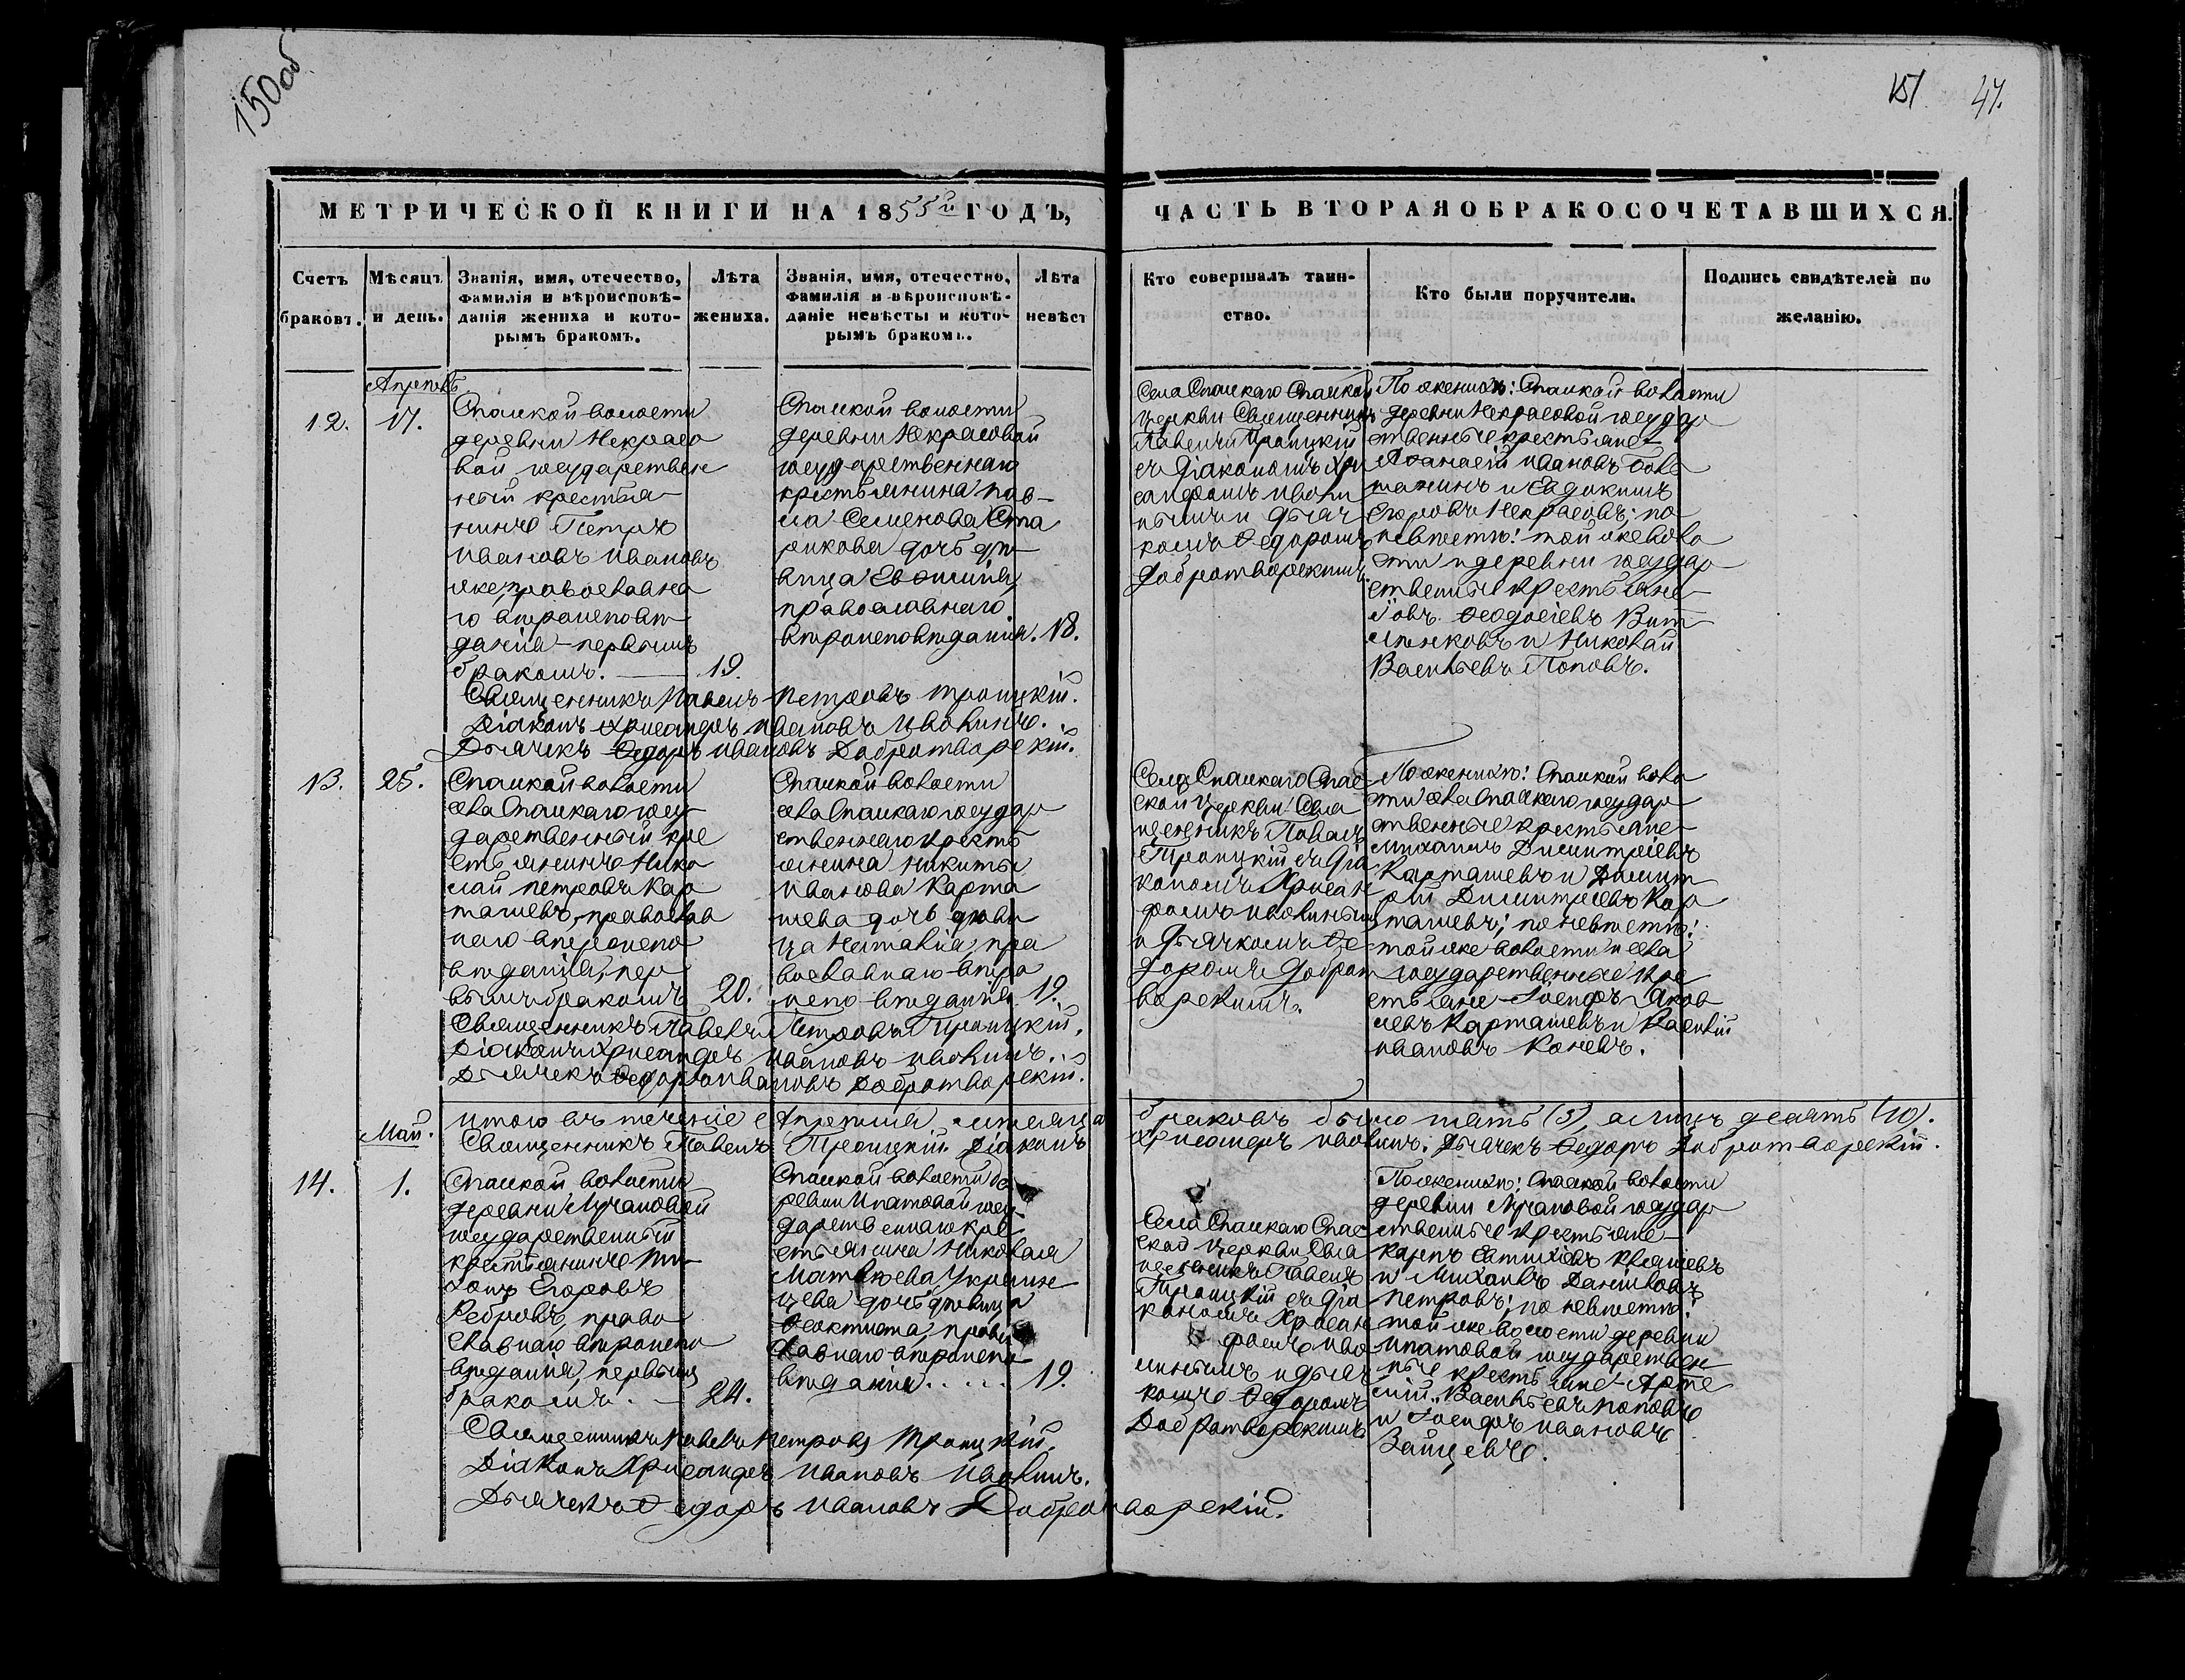 150об
151 47.
МЕТРИЧЕСКОЙ КНИГИ НА 1855й ГОДЪ,
ЧАСТЬ ВТОРАЯ О БРАКОСОЧЕТАВШИХСЯ.
Счетъ браковъ.
Мѣсяцъ и день.
Званія, имя, отечество,
фамилія и вѣроисповѣ-
данія жениха и кото-
рымъ бракомъ.
Лѣта жениха.
Званія, имя, отечество,
фамилія и вѣроисповѣ-
даніе невѣсты и кото-
рымъ бракомъ.
Лѣта невѣст
Кто совершалъ таин-
ство.
Кто были поручители.
Подпись свидѣтелей по
желанію.
Апрель
12.
17.
Спаской волости
деревни Некрасо
вой государствен
ный крестья-
нинъ Петръ
Ивановъ Ивановъ
же, православна
го вѣроисповѣ-
данія – первымъ
бракомъ. — 19.
Спаской волости
деревни Некрасовой
государственнаго
крестьянина Пав-
ла Семенова Ста
рикова дочь дѣ-
вица Евфимія,
православнаго
вѣроисповѣданія. 18.
Села Спаскаго Спаской
церкви Священникъ
Павелъ Троицкій
съ Діакономъ Хри
сандромъ Иволи
нымъ и дьяч
комъ Федоромъ
Добротворскимъ.
По женихѣ: Спаской волости
деревни Некрасовой государ
ственные крестьяне
Афанасій Ивановъ Бова
и Евдокимъ
Егоровъ Некрасовъ; по
невѣстѣ: той же воло
сти и деревни государ
ственные крестьяне
Іовъ Феодосіевъ
и Николай
Васильевъ Поповъ.
Священникъ Павелъ Петровъ Троицкій.
Діаконъ Хрисандръ Ивановъ Иволинъ.
Дьячекъ Федоръ Ивановъ Добротворскій.
13.
25.
Спаской волости
села Спаскаго госу
дарственный кре
стьянинъ Нико
лай Петровъ Кар
ташевъ, православ
наго вѣроиспо
вѣданія, пер
вымъ бракомъ 20.
Спаской волости
села Спаскаго государ
ственнаго кресть
янина Никиты
Иванова Карта
шева дочь дѣви
ца Наталія, пра
вославнаго вѣро
исповѣданія 19.
Села Спаскаго Спас
ской церкви Свя
щенникъ Павелъ
Троицкій съ Діа
кономъ Хрисан
дромъ Иволинымъ
и Дьячкомъ Фе
доромъ Доброт
ворскимъ.
По женихѣ: Спаской воло
сти села Спаскаго государ
ственные крестьяне
Михаилъ Димитріевъ
Карташевъ и Димит
рій Димитріевъ Кар
ташевъ; по невѣстѣ:
той же волости и села
государственные кре
стьяне Іосифъ Яков
левъ Карташевъ и Василій
Ивановъ Коневъ.
Священникъ Павелъ Петровъ Троицкій.
Діаконъ Хрисандръ Ивановъ Иволинъ.
Дьячекъ Федоръ Ивановъ Добротворскій.
Итого въ теченіе Апреля месяца браковъ было пять (5), а лицъ десять (10).
Священникъ Павелъ Троицкій. Діаконъ Хрисандръ Иволинъ. Дьячекъ Федоръ Добротворскій.
Май.
14.
1.
Спаской волости
деревни Лучановой
государственный
крестьянинъ Ти-
хонъ Егоровъ
Ребровъ, право
славнаго вѣроиспо
вѣданія, первымъ
бракомъ. — 24.
Спаской волости де
ревни Ипатовой госу
дарственнаго кре
стьянина Николая
Матвѣева Украин
цева дочь дѣвица
Феоктиста, право
славнаго вѣроиспо
вѣданія..... 19.
Села Спаскаго Спас
ской церкви Свя
щенникъ Павелъ
Троицкій съ Діа
кономъ Хрисан
дромъ Иво
линымъ и дьяч
комъ Федоромъ
Добротворскимъ
По женихѣ: Спаской волости
деревни Лучановой государ
ственные крестьяне
Карпъ Евтихіевъ
и Михаилъ Даниловъ
Петровъ; по невѣстѣ:
той же волости деревни
Ипатовой государствен
ные крестьяне Арте
мій Васильевъ Поповъ
и Іосифъ Ивановъ
Зайцевъ.
Священникъ Павелъ Петровъ Троицкій.
Діаконъ Хрисандръ Ивановъ Иволинъ.
Дьячекъ Федоръ Ивановъ Добротворскій.